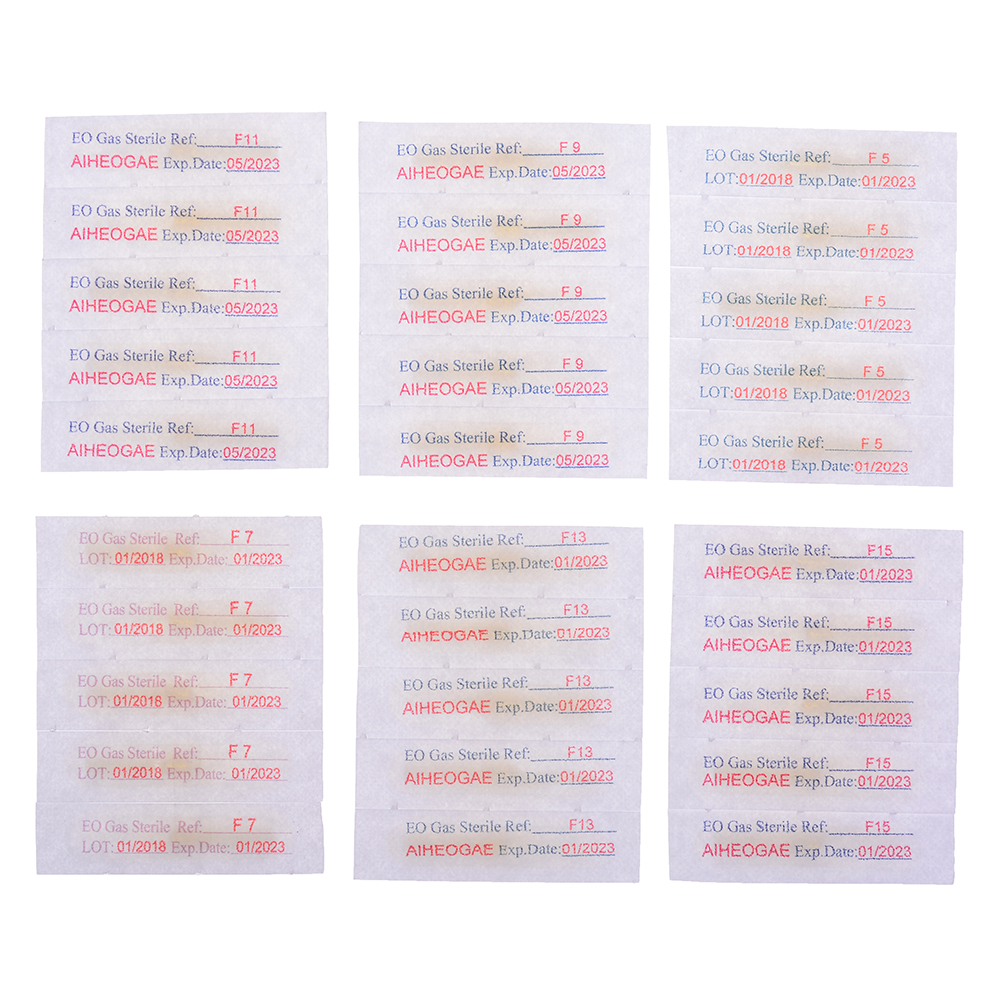 EO Gas Sterile Ref: F11
AIHEOGAE Exp.Date:05/2023
EO Gas Sterile Ref: F11
AIHEOGAE Exp.Date:05/2023
EO Gas Sterile Ref: F11
AIHEOGAE Exp.Date:05/2023
EO Gas Sterile Ref: F11
AIHEOGAE Exp.Date:05/2023
EO Gas Sterile Ref: F11
AIHEOGAE Exp.Date:05/2023
EO Gas Sterile Ref: F 9
AIHEOGAE Exp.Date:05/2023
EO Gas Sterile Ref: F 9
AIHEOGAE Exp.Date:05/2023
EO Gas Sterile Ref: F 9
AIHEOGAE Exp.Date:05/2023
EO Gas Sterile Ref: F 9
AIHEOGAE Exp.Date:05/2023
EO Gas Sterile Ref: F 9
AIHEOGAE Exp.Date:05/2023
EO Gas Sterile Ref: F 5
LOT:01/2018 Exp.Date:01/2023
EO Gas Sterile Ref: F 5
LOT:01/2018 Exp.Date:01/2023
EO Gas Sterile Ref: F 5
LOT:01/2018 Exp.Date:01/2023
EO Gas Sterile Ref: F 5
LOT:01/2018 Exp.Date:01/2023
EO Gas Sterile Ref: F 5
LOT:01/2018 Exp.Date:01/2023
EO Gas Sterile Ref: F 7
LOT: 01/2018 Exp.Date: 01/2023
EO Gas Sterile Ref: F 7
LOT: 01/2018 Exp.Date: 01/2023
EO Gas Sterile Ref: F 7
LOT: 01/2018 Exp.Date: 01/2023
EO Gas Sterile Ref: F 7
LOT: 01/2018 Exp.Date: 01/2023
EO Gas Sterile Ref: F 7
LOT: 01/2018 Exp.Date: 01/2023
EO Gas Sterile Ref: F13
AIHEOGAE Exp.Date:01/2023
EO Gas Sterile Ref: F13
AIHEOGAE Exp.Date:01/2023
EO Gas Sterile Ref: F13
AIHEOGAE Exp.Date:01/2023
EO Gas Sterile Ref: F13
AIHEOGAE Exp.Date:01/2023
EO Gas Sterile Ref: F13
AIHEOGAE Exp.Date:01/2023
EO Gas Sterile Ref: F15
AIHEOGAE Exp.Date:01/2023
EO Gas Sterile Ref: F15
AIHEOGAE Exp.Date:01/2023
EO Gas Sterile Ref: F15
AIHEOGAE Exp.Date:01/2023
EO Gas Sterile Ref: F15
AIHEOGAE Exp.Date:01/2023
EO Gas Sterile Ref: F15
AIHEOGAE Exp.Date:01/2023